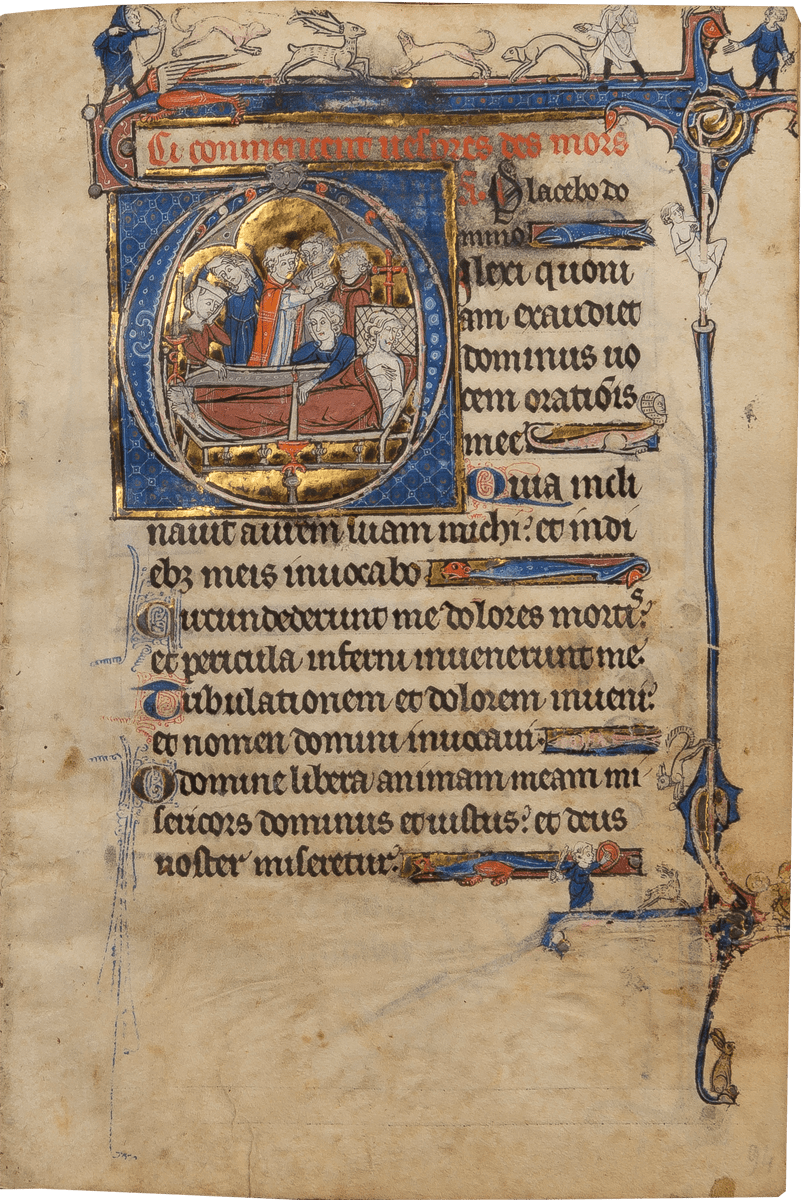 Ci conmencent vespres des mors
A. Placebo do
mino
Dilexi quoni
am exaudiet
dominus uo
cem orationis
mee
Quia incli
nauit aurem suam michi: et in di
ebz meis inuocabo
Circundederunt me dolores mortis:
et pericula inferni inuenerunt me.
Tribulationem et dolorem inueni:
et nomen domini inuocaui.
O domine libera animam meam mi
sericors dominus et iustus: et deus
noster miseretur.